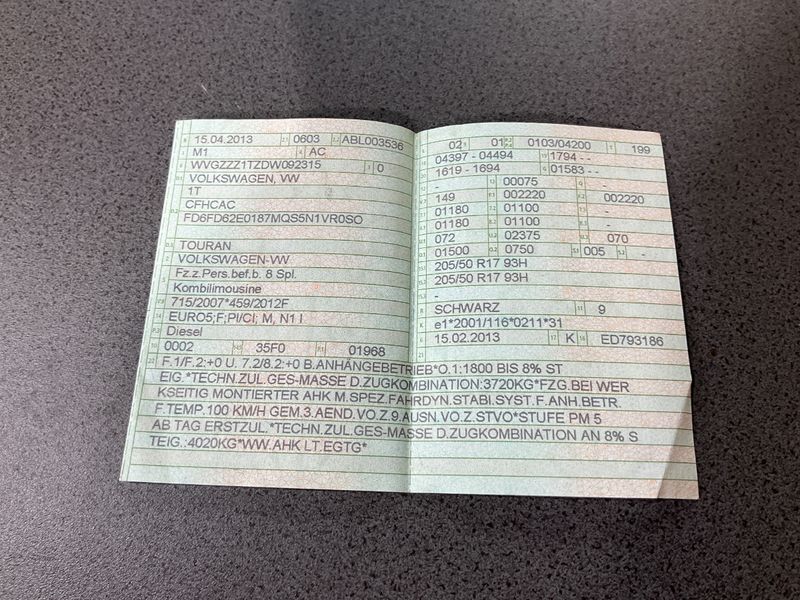 15.04.2013 0603 ABL003536
M1 AC
WVGZZZ1TZDW092315 0
VOLKSWAGEN, VW
1T
CFHCAC
FD6FD62E0187MQS5N1VR0SO
TOURAN
VOLKSWAGEN-VW
Fz.z.Pers.bef.b. 8 Spl.
Kombilimousine
715/2007*459/2012F
EURO5;F;PI/CI; M, N1 I
Diesel
0002 35F0 01968
02 01 0103/04200 199
04397 - 04494 1794 - -
1619 - 1694 01583 - -
- 00075 -
149 002220 002220
01180 01100 -
01180 01100 -
072 02375 070
01500 0750 005 -
205/50 R17 93H
205/50 R17 93H
-
SCHWARZ 9
e1*2001/116*0211*31
15.02.2013 K ED793186
F.1/F.2:+0 U. 7.2/8.2:+0 B.ANHÄNGEBETRIEB*O.1:1800 BIS 8% ST
EIG.*TECHN.ZUL.GES-MASSE D.ZUGKOMBINATION:3720KG*FZG.BEI WER
KSEITIG MONTIERTER AHK M.SPEZ.FAHRDYN.STABI.SYST.F.ANH.BETR.
F.TEMP.100 KM/H GEM.3.AEND.VO.Z.9.AUSN.VO.Z.STVO*STUFE PM 5
AB TAG ERSTZUL.*TECHN.ZUL.GES-MASSE D.ZUGKOMBINATION AN 8% S
TEIG.:4020KG*WW.AHK LT.EGTG*